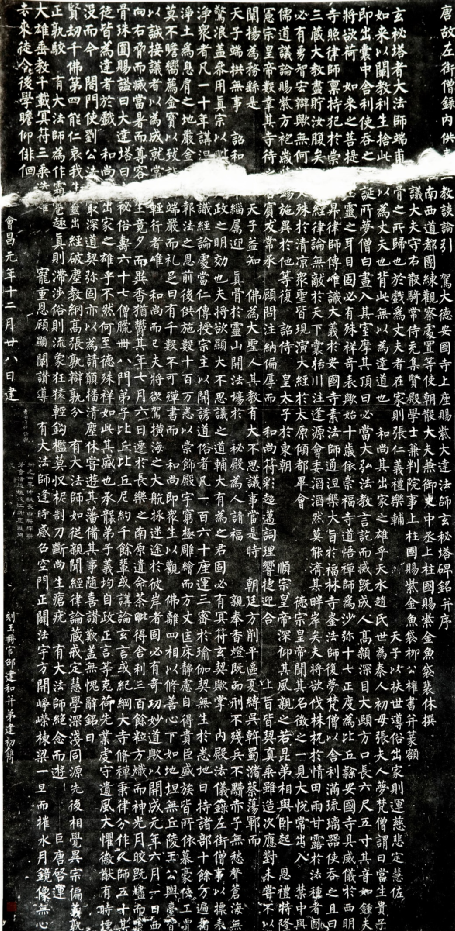 唐故左街僧錄內供三教談論引駕大德安國寺上座賜紫大達法師玄秘塔碑銘并序
南西道都團練觀察處置等使朝散大夫兼御史中丞上柱國賜紫金魚袋裴休撰
議大夫守右散騎常侍充集賢殿學士兼判院事上柱國賜紫金魚袋柳公權書并篆額
玄秘塔者大法師端甫骨之所歸也於戲為丈夫者在家則張仁義禮樂輔天子以扶世導俗出家則運慈悲定慧佐
如來以闡教利生捨此以為丈夫也背此無以為達道也和尚其出家之雄乎天水趙氏世為秦人初母張夫人夢梵僧謂曰當生貴子
即出囊中舍利使吞之誕所夢僧白晝入其室摩其頂曰必當大弘法教言訖而滅既成人高顙深目大頤方口長六尺五寸其音如鐘夫
將欲荷如來之菩提靈之耳目固必有殊祥奇表歟始十歲依崇福寺道悟禪師為沙彌十七正度為比丘隸安國寺具威儀於西明
寺照律師稟持犯於崇昇律師傳唯識大義於安國寺素法師通涅槃大旨於福林寺崟法師復夢梵僧以舍利滿琉璃器使吞之且曰
三藏大教盡貯汝腹矣經律論無敵於天下囊括川注逢源會委滔滔然莫能濟其畔岸矣夫將欲伐株杌於情田雨甘露於法種者固
必有勇智宏辯歟無何殊於清涼眾聖皆現演大經於太原傾都畢會德宗皇帝聞其名徵之一見大悅常出入禁中與
佛道議論賜紫方袍歲時錫施異於他等復詔侍皇太子於東朝順宗皇帝深仰其風親之若昆弟相與臥起恩禮特隆
憲宗皇帝數幸其寺待之賓友常承顧問注納偏厚而和尚符彩超邁詞理響捷迎合上旨皆契真乘雖造次應對未嘗不以
闡揚為務繇是天子益知佛為大聖人其教有大不思議事當是時朝廷方削平區夏縛吳幹蜀瀦蔡蕩鄆而
天子端拱無事詔和緇屬迎真骨於靈山開法場於秘殿為人請福親奉香燈既而刑不殘兵不黷赤子無愁聲蒼海無
驚浪蓋參用真宗以毗政之明效也夫將欲顯大不思議之道輔大有為之君固必有冥符玄契歟掌內殿法儀錄左街僧事以摽表
淨眾者凡一十年講涅識經論處當仁傳授宗主以開誘道俗者凡一百六十座運三密於瑜伽契無生於悉地日持諸部十餘萬遍指
淨土為息肩之地嚴金報法之恩前後供施數十百萬悉以崇飾殿宇窮極雕繪而方丈匡床靜慮自得貴臣盛族皆所依慕豪俠工賈
莫不瞻嚮薦金寶以致誠端嚴而禮足日有千數不可殫書而和尚即眾生以觀佛離四相以修善心下如地坦無丘陵王公輿臺皆
以誠接議者以為成就常輕行者唯和尚而已夫將欲駕橫海之大航拯迷途於彼岸者固必有奇功妙道歟以開成元年六月一日西
向右脅而滅當暑而尊容生竟夕而異香猶鬱其年七月六日遷於長樂之南原遺命荼毗得舍利三百餘粒方熾而神光月皎既燼而靈
骨珠圓賜諡曰大達塔曰秘俗壽六十七僧臘卌八門弟子比丘比丘尼約千餘輩或講論玄言或紀綱大寺修禪秉律分作人師五十其
徒皆為達者於戲和尚出家之雄乎不然何至德殊祥如此其盛也承襲弟子義均自政正言等克荷先業虔守遺風大懼徽猷有時堙
沒而今閤門使劉公法最深道契彌固亦以為請願播清塵休嘗遊其藩備其事隨喜讚嘆蓋無愧辭銘曰
賢劫千佛第四能仁哀我出經破塵教網高張孰辯孰分有大法師如從親聞經律論藏戒定慧學深淺同源先後相覺異宗偏義孰
正孰駁有大法師為作霜雹趣真則滯涉俗則流象狂猿輕鉤檻莫收柅制刀斷尚生瘡疣有大法師絕念而遊巨唐啟運
大雄垂教千載冥符三乘迭寵重恩顧顯闡讚導有大法師逢時感召空門正闢法宇方開崢嶸棟梁一旦而摧水月鏡像無心
去來徒令後學瞻仰徘徊
會昌元年十二月廿八日建
刻玉冊官邵建和并弟建初鐫